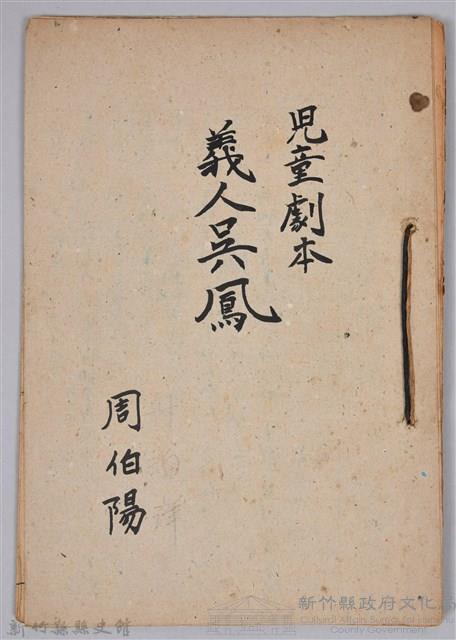 児童劇本
義人吳鳳
周伯陽
新竹縣縣史館
新竹縣政府文化局
County Government